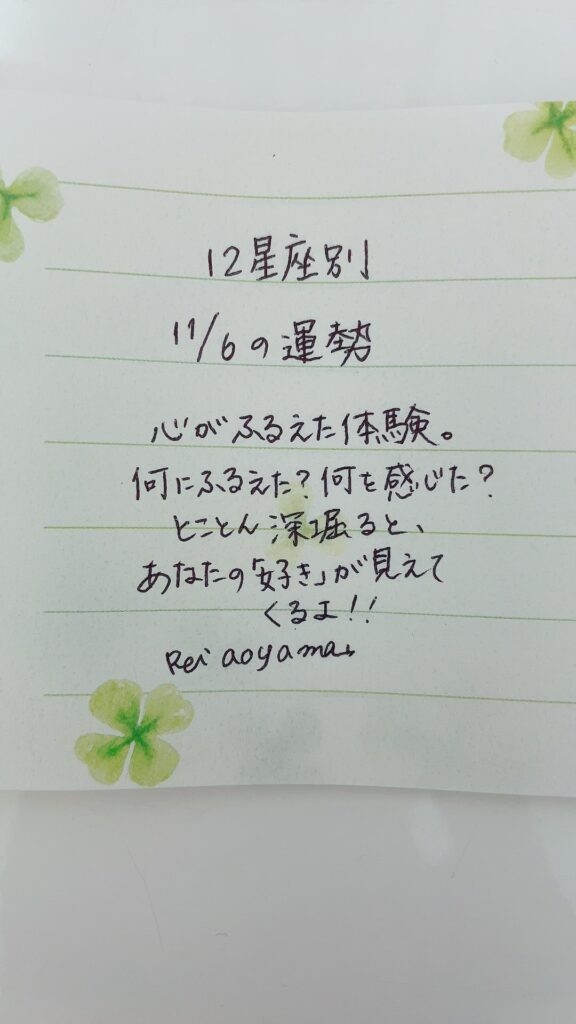 12星座別
11/6の運勢
心がふるえた体験。
何にふるえた?何を感じた?
とことん深堀ると、
あなたの「好き」が見えて
くるよ!!
Rei aoyama